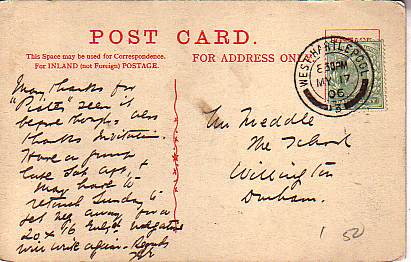 POST CARD.
This Space may be used for Correspondence.
For INLAND (not Foreign) POSTAGE.
FOR ADDRESS ONLY.
WEST HARTLEPOOL
8.30PM
MY 17
06
Many thanks for
seen it
before though, also
thanks invitation.
Have a
late Sat
may have to
return Sunday to
get neg away for a
20 x 16
will write again. Regards
Meddle
The School
Willington
Durham.
1 50